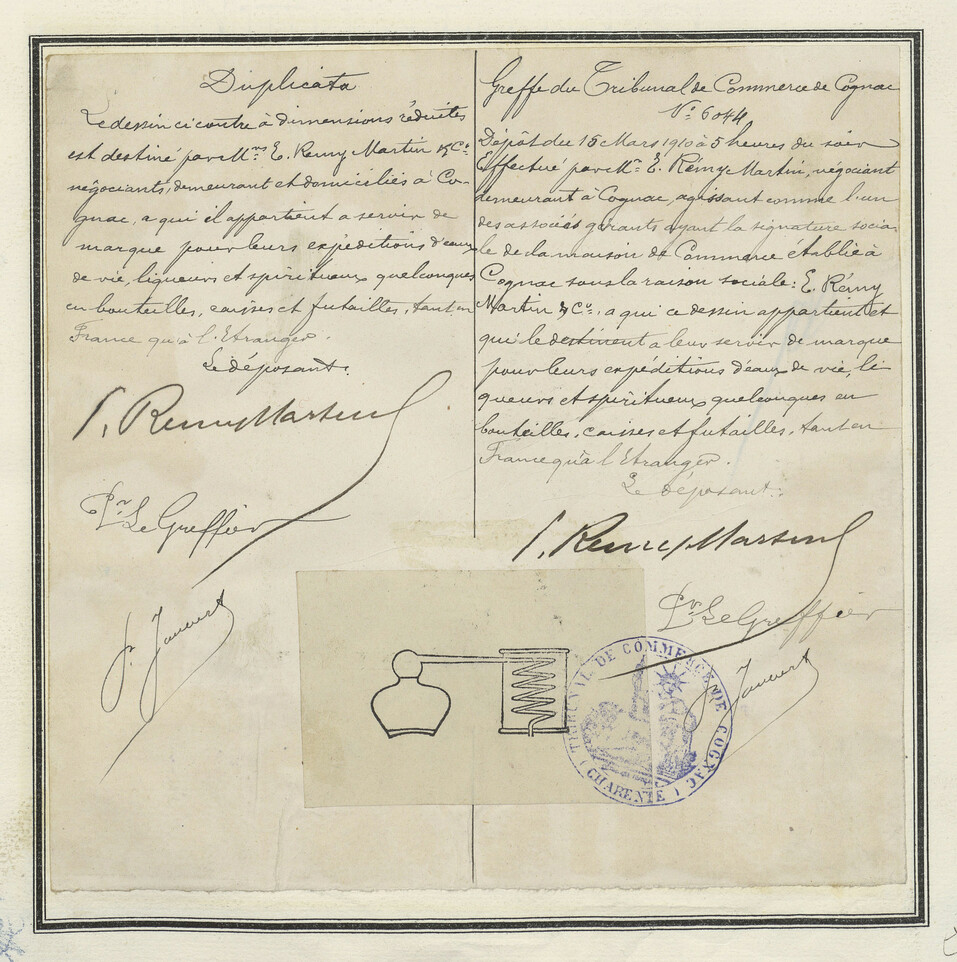 Duplicata
Le dessin ci contre à dimensions réduites
est destiné par Mrs E. Remy Martin & Co.
négociants, demeurant et domiciliés à Co-
gnac, a qui il appartient a servir de
marque pour leurs expéditions d'eaux
de vie, liqueurs et spiritueux quelconques
en bouteilles, caisses et futailles, tant en
France qu'à l'Etranger.
Le déposant:
E. Remy Martin
Pr Le Greffier
Greffe du Tribunal de Commerce de Cognac
No. 6044.
Dépôt du 15 Mars 1910 à 5 heures du soir
Effectué par Mr. E. Rémy Martin, négociant
demeurant à Cognac, agissant comme l'un
des associés gérants ayant la signature socia
le de la maison de Commerce établie à
Cognac sous la raison sociale: E. Rémy
Martin & Co., a qui ce dessin appartient et
qui le destinent a leur servir de marque
pour leurs expéditions d'eaux de vie, li
queurs et spiritueux quelconques en
bouteilles, caisses et futailles, tant en
France qu'à l'Etranger.
Le déposant:
E. Remy Martin
Pr Le Greffier
TRIBUNAL DE COMMERCE DE COGNAC
(CHARENTE)